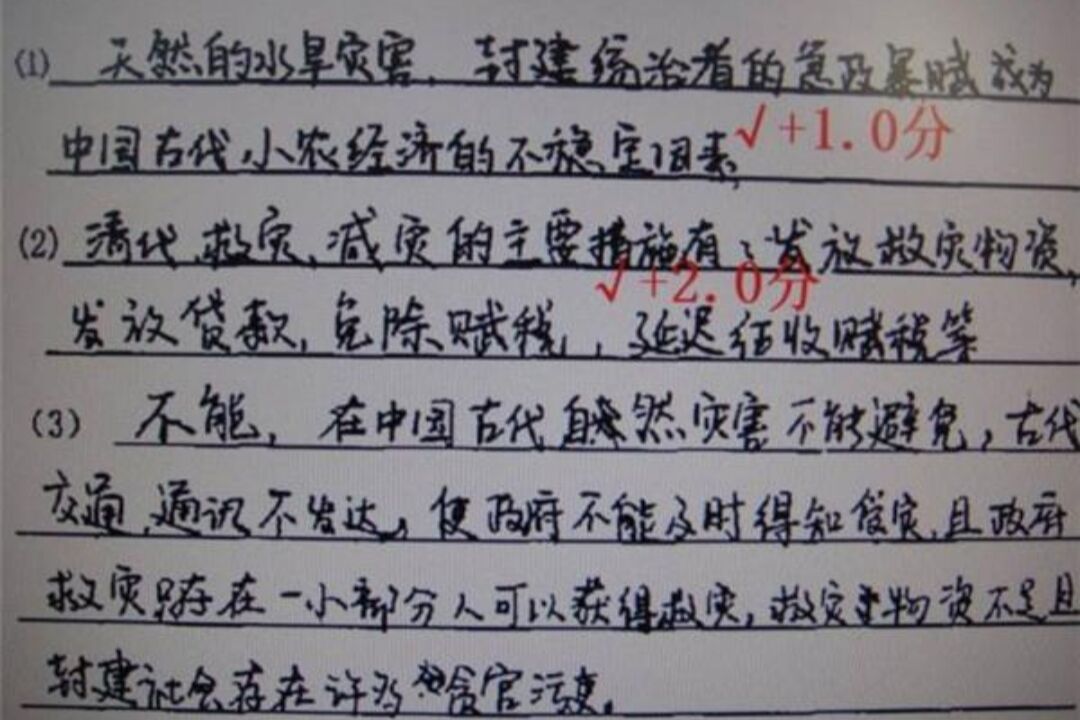 (1) 天然的水旱灾害，封建统治者的急政暴赋成为
中国古代小农经济的不稳定因素， √+1.0分
(2) 清代救灾、减灾的主要措施有：发放救灾物资，
√+2.0分
发放贷款，免除赋税，延迟征收赋税等
(3) 不能，在中国古代自然灾害不能避免，古代
交通、通讯不发达，使政府不能及时得知灾，且政府
救灾只存在一小部分人可以获得救灾，救灾物资不足且
封建社会存在许多贪官污吏。